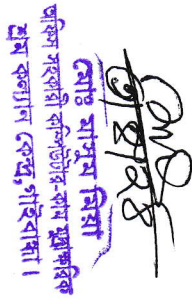 মোঃ মাসুম মিয়া
অফিস সহকারী কম্পিউটার-কাম মুদ্রাক্ষরিক
শ্রম কল্যাণ কেন্দ্র, গাইবান্ধা।